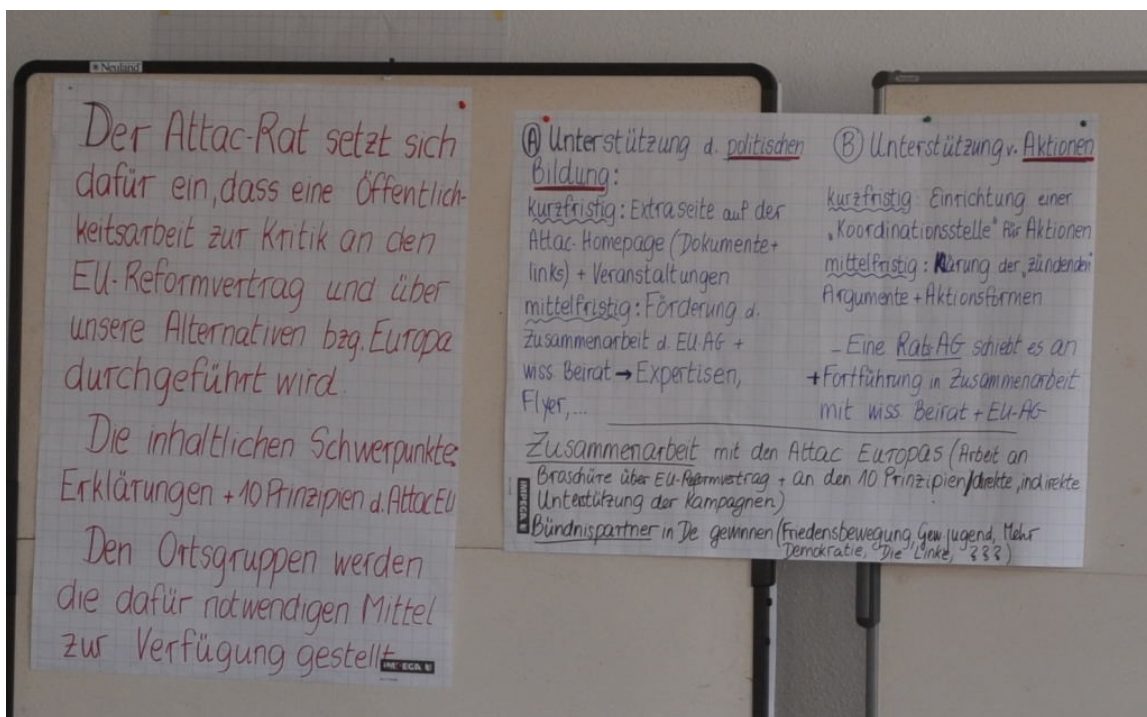 Neuland
Der Attac-Rat setzt sich
dafür ein, dass eine Öffentlich-
keitsarbeit zur Kritik an den
EU-Reformvertrag und über
unsere Alternativen bzg. Europa
durchgeführt wird.
Die inhaltlichen Schwerpunkte:
Erklärungen + 10 Prinzipien d. Attac EU
Den Ortsgruppen werden
die dafür notwendigen Mittel
zur Verfügung gestellt.
IMPEGA
Ⓐ Unterstützung d. politischen
Bildung:
kurzfristig: Extraseite auf der
Attac-Homepage (Dokumente +
links) + Veranstaltungen
mittelfristig: Förderung d.
Zusammenarbeit d. EU-AG +
wiss Beirat → Expertisen,
Flyer,...
Ⓑ Unterstützung v. Aktionen
kurzfristig: Einrichtung einer
„Koordinationsstelle" für Aktionen
mittelfristig: Klärung der „zündenden"
Argumente + Aktionsformen
- Eine Rats-AG schiebt es an
+ Fortführung in Zusammenarbeit
mit wiss Beirat + EU-AG
Zusammenarbeit mit den Attac Europas (Arbeit an
Broschüre über EU-Reformvertrag + an den 10 Prinzipien/direkte, indirekte
Unterstützung der Kampagnen)
Bündnispartner in De gewinnen (Friedensbewegung, Gew.jugend, Mehr
Demokratie, Die Linke, ???)
IMPEGA